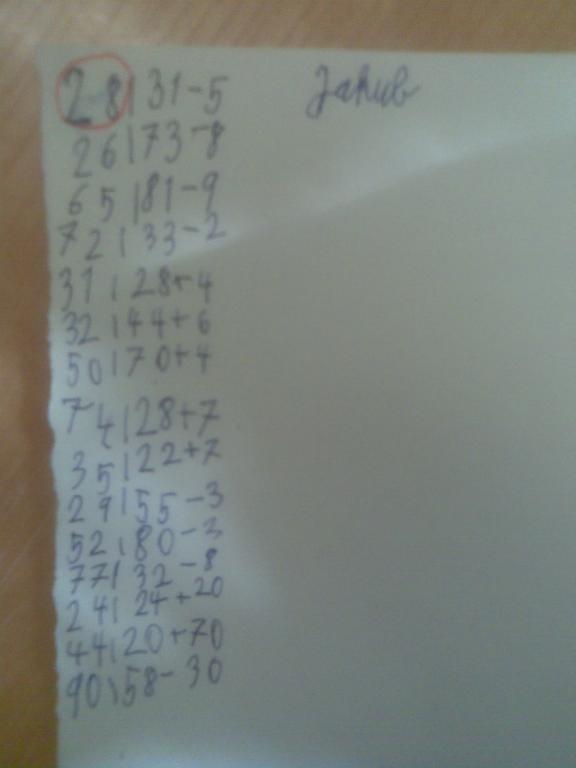 28|31-5 Jakub
26|73-8
65|81-9
72|33-2
31|28+4
32|44+6
50|70+4
74|28+7
35|22+7
29|55-3
52|80-3
77|32-8
24|24+20
44|20+70
90|58-30